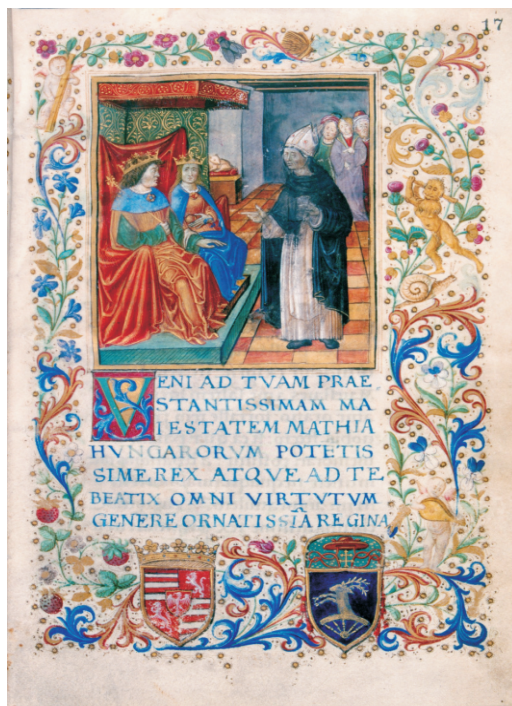 17
VENI AD TVAM PRAE
STANTISSIMAM MA
IESTATEM MATHIA
HUNGARORVM POTETIS
SIME REX ATQVE AD TE
BEATIX OMNI VIRTVTVM
GENERE ORNATISSIÃ REGINA